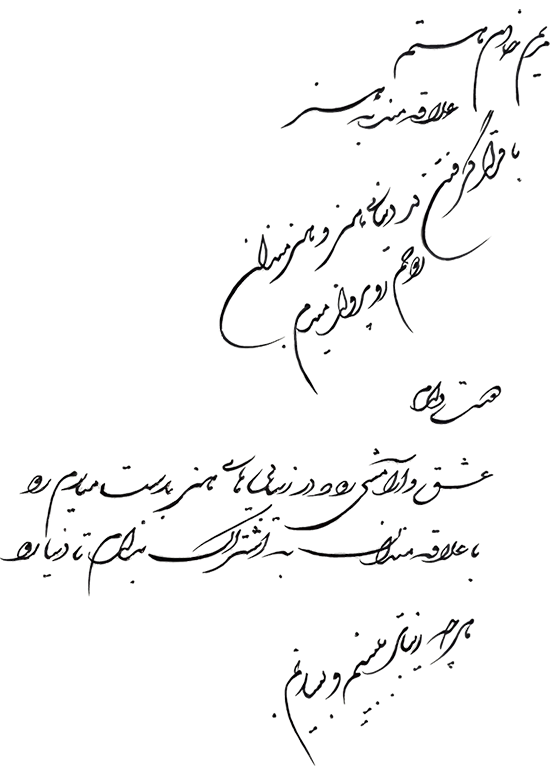 مریم خوان هستم
علاقه مند به هنر
با قرار گرفتن در دنیای هنر و هنرمندان
روحم رو پرواز میدم
دوست دارم
عشق و آرامشی رو که در زیبایی های هنر بدست میارم رو
با علاقه مندان به اشتراک بذارم تا دنیا رو
هر چه زیباتر ببینیم و بسازیم